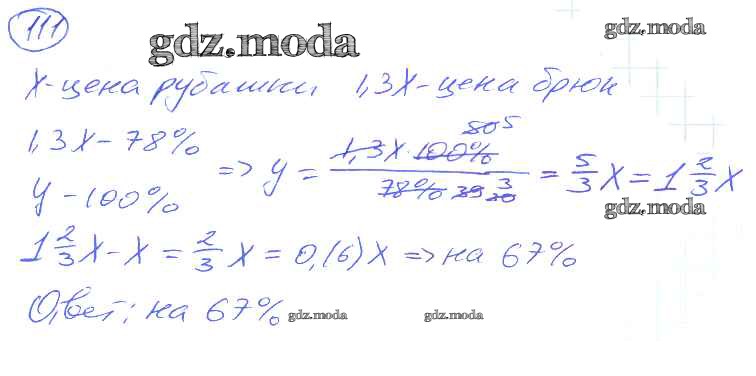 111
gdz.moda
gdz.moda
x - цена рубашки 1,3x - цена брюк
1,3x - 78%
y - 100%
=> y = 1,3x · 100% / 78% = 5/3 x = 1 2/3 x
50 5
39 30 3
gdz.moda
1 2/3 x - x = 2/3 x = 0,(6)x => на 67%
Ответ: на 67%
gdz.moda
gdz.moda